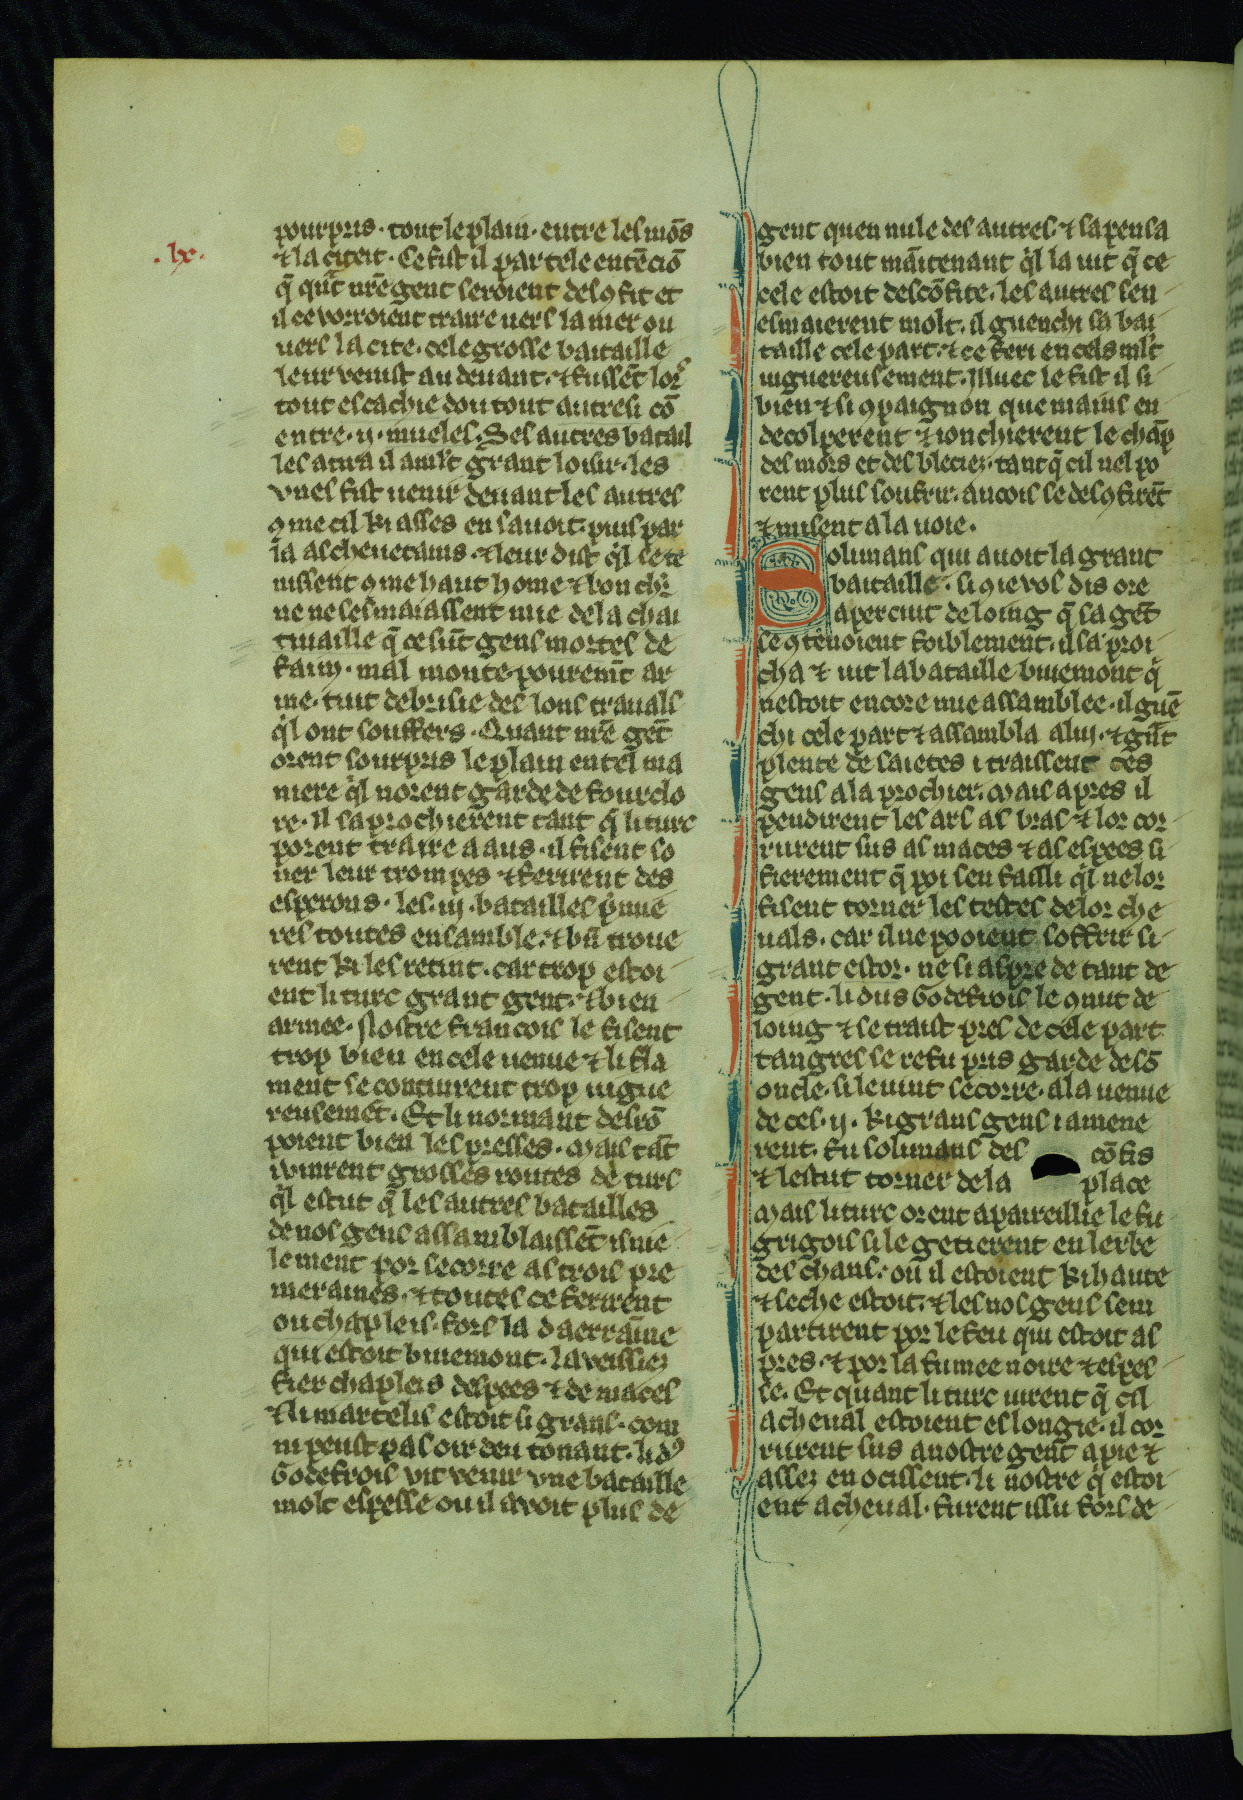 .lx.
pourpris. tout le plain. entre les mōs
⁊ la citeit. Ce fist il par tele entēciō
q̄ qūt nr̄e gent seroient des9fit et
il ce vorroient traire uers la mer ou
uers la cite. cele grosse bataille
leur venist au deuant. ⁊ fussēt lor
tout escachie dou tout autresi cō
entre .ij. mueles. Ses autres batail
les atira il a ml̄t grant loisir. les
vnes fist uenir deuant les autres
9me cil ki asses en sauoit. puis par
la as cheuetains. ⁊ leur dist q̄l se te
nissent 9me haut home ⁊ bon chr̄
ne ne sesmaiassent mie de la chai
tiuaille q̄ ce sūt gens mortes de
faim. mal monte pourem̄t ar
me. tuit debrisie des lons trauals
q̄l ont souffers. Quant nr̄e gēt
orent sourpris le plain en tel ma
niere q̄l norent garde de fourclo
re. il saprochierent tant q̄ li turc
porent traire a aus. il fisent so
ner leur trompes ⁊ ferirent des
esperons. les .iij. batailles p̄mie
res toutes ensamble. ⁊ bn̄ troue
rent ki les retint. car trop estoi
ent li turc grant gent. ⁊ bien
armee. Nostre francois le fisent
trop bien en cele uenue ⁊ li fla
ment se contiurent trop uigue
reusemēt. Et li normant desrō
poient bien les presses. Mais tāt
i vinrent grosses routes de turs
q̄l estut q̄ les autres batailles
de nos gens assamblaissēt isnie
lement por secorre as trois pre
meraines. ⁊ toutes ce ferirent
ou chapleis. fors la daerraīne
qui estoit buiemont. la veissiez
fier chapleis despees ⁊ de maces
⁊ li martelis estoit si grans. com
ni peust pas oir deu tonant. li d9
Godefrois vit venir vne bataille
molt espesse ou il auoit plus de
gent quen nule des autres ⁊ sapensa
bien tout māitenant q̄l la uit q̄ ce
cele estoit descōfite. les autres sen
esmaierent molt. il guenchi sa bai
taille cele part. ⁊ ce feri en cels ml̄t
uiguereusement. Illuec le fist il si
bien ⁊ si 9paignon que mains en
decolperent ⁊ ionchierent le chāp
des mors et des bleciez. tant q̄ cil nel po
rent plus soufrir. ancois se des9firēt
⁊ misent a la uoie.
Solimans qui auoit la grant
baitaille. si 9 ie vos dis ore
aperciut de loing q̄ sa gēt
se 9tenoient foiblement. il sa proi
cha ⁊ uit la bataille buiemont q̄
nestoit encore mie assamblee. il guē
chi cele part ⁊ assambla a lui. ⁊ gn̄t
plente de saietes i traissent ces
gens a la prochier. Mais apres il
pendirent les ars as bras ⁊ lor cor
rurent sus as maces ⁊ as espees si
fierement q̄ poi sen failli q̄l ne lor
fisent torner les testes de lor che
uals. car il ne pooient soffrir si
grant estor. ne si aspre de tant de
gent. li dus Godefrois le 9nut de
loing ⁊ se traist pres de cele part
tangres se refu pris garde de sō
oncle. si le uint secorre. a la uenue
de ces .ij. ki grans gens i amene
rent. fu solimans des cōfis
⁊ lestut torner de la place
Mais li turc orent apaireillie le fu
grigois si le getierent en lerbe
des chans. ou il estoient ki haute
⁊ seche estoit. ⁊ les nos gens sem
partirent por le feu qui estoit as
pres. ⁊ por la fumee noire ⁊ espes
se. Et quant li turc uirent q̄ cil
a cheual estoient eslongie. il cor
rurent sus a nostre gent a pie ⁊
assez en ocissent. li nostre q̄ estoi
ent a cheual. furent issu fors de